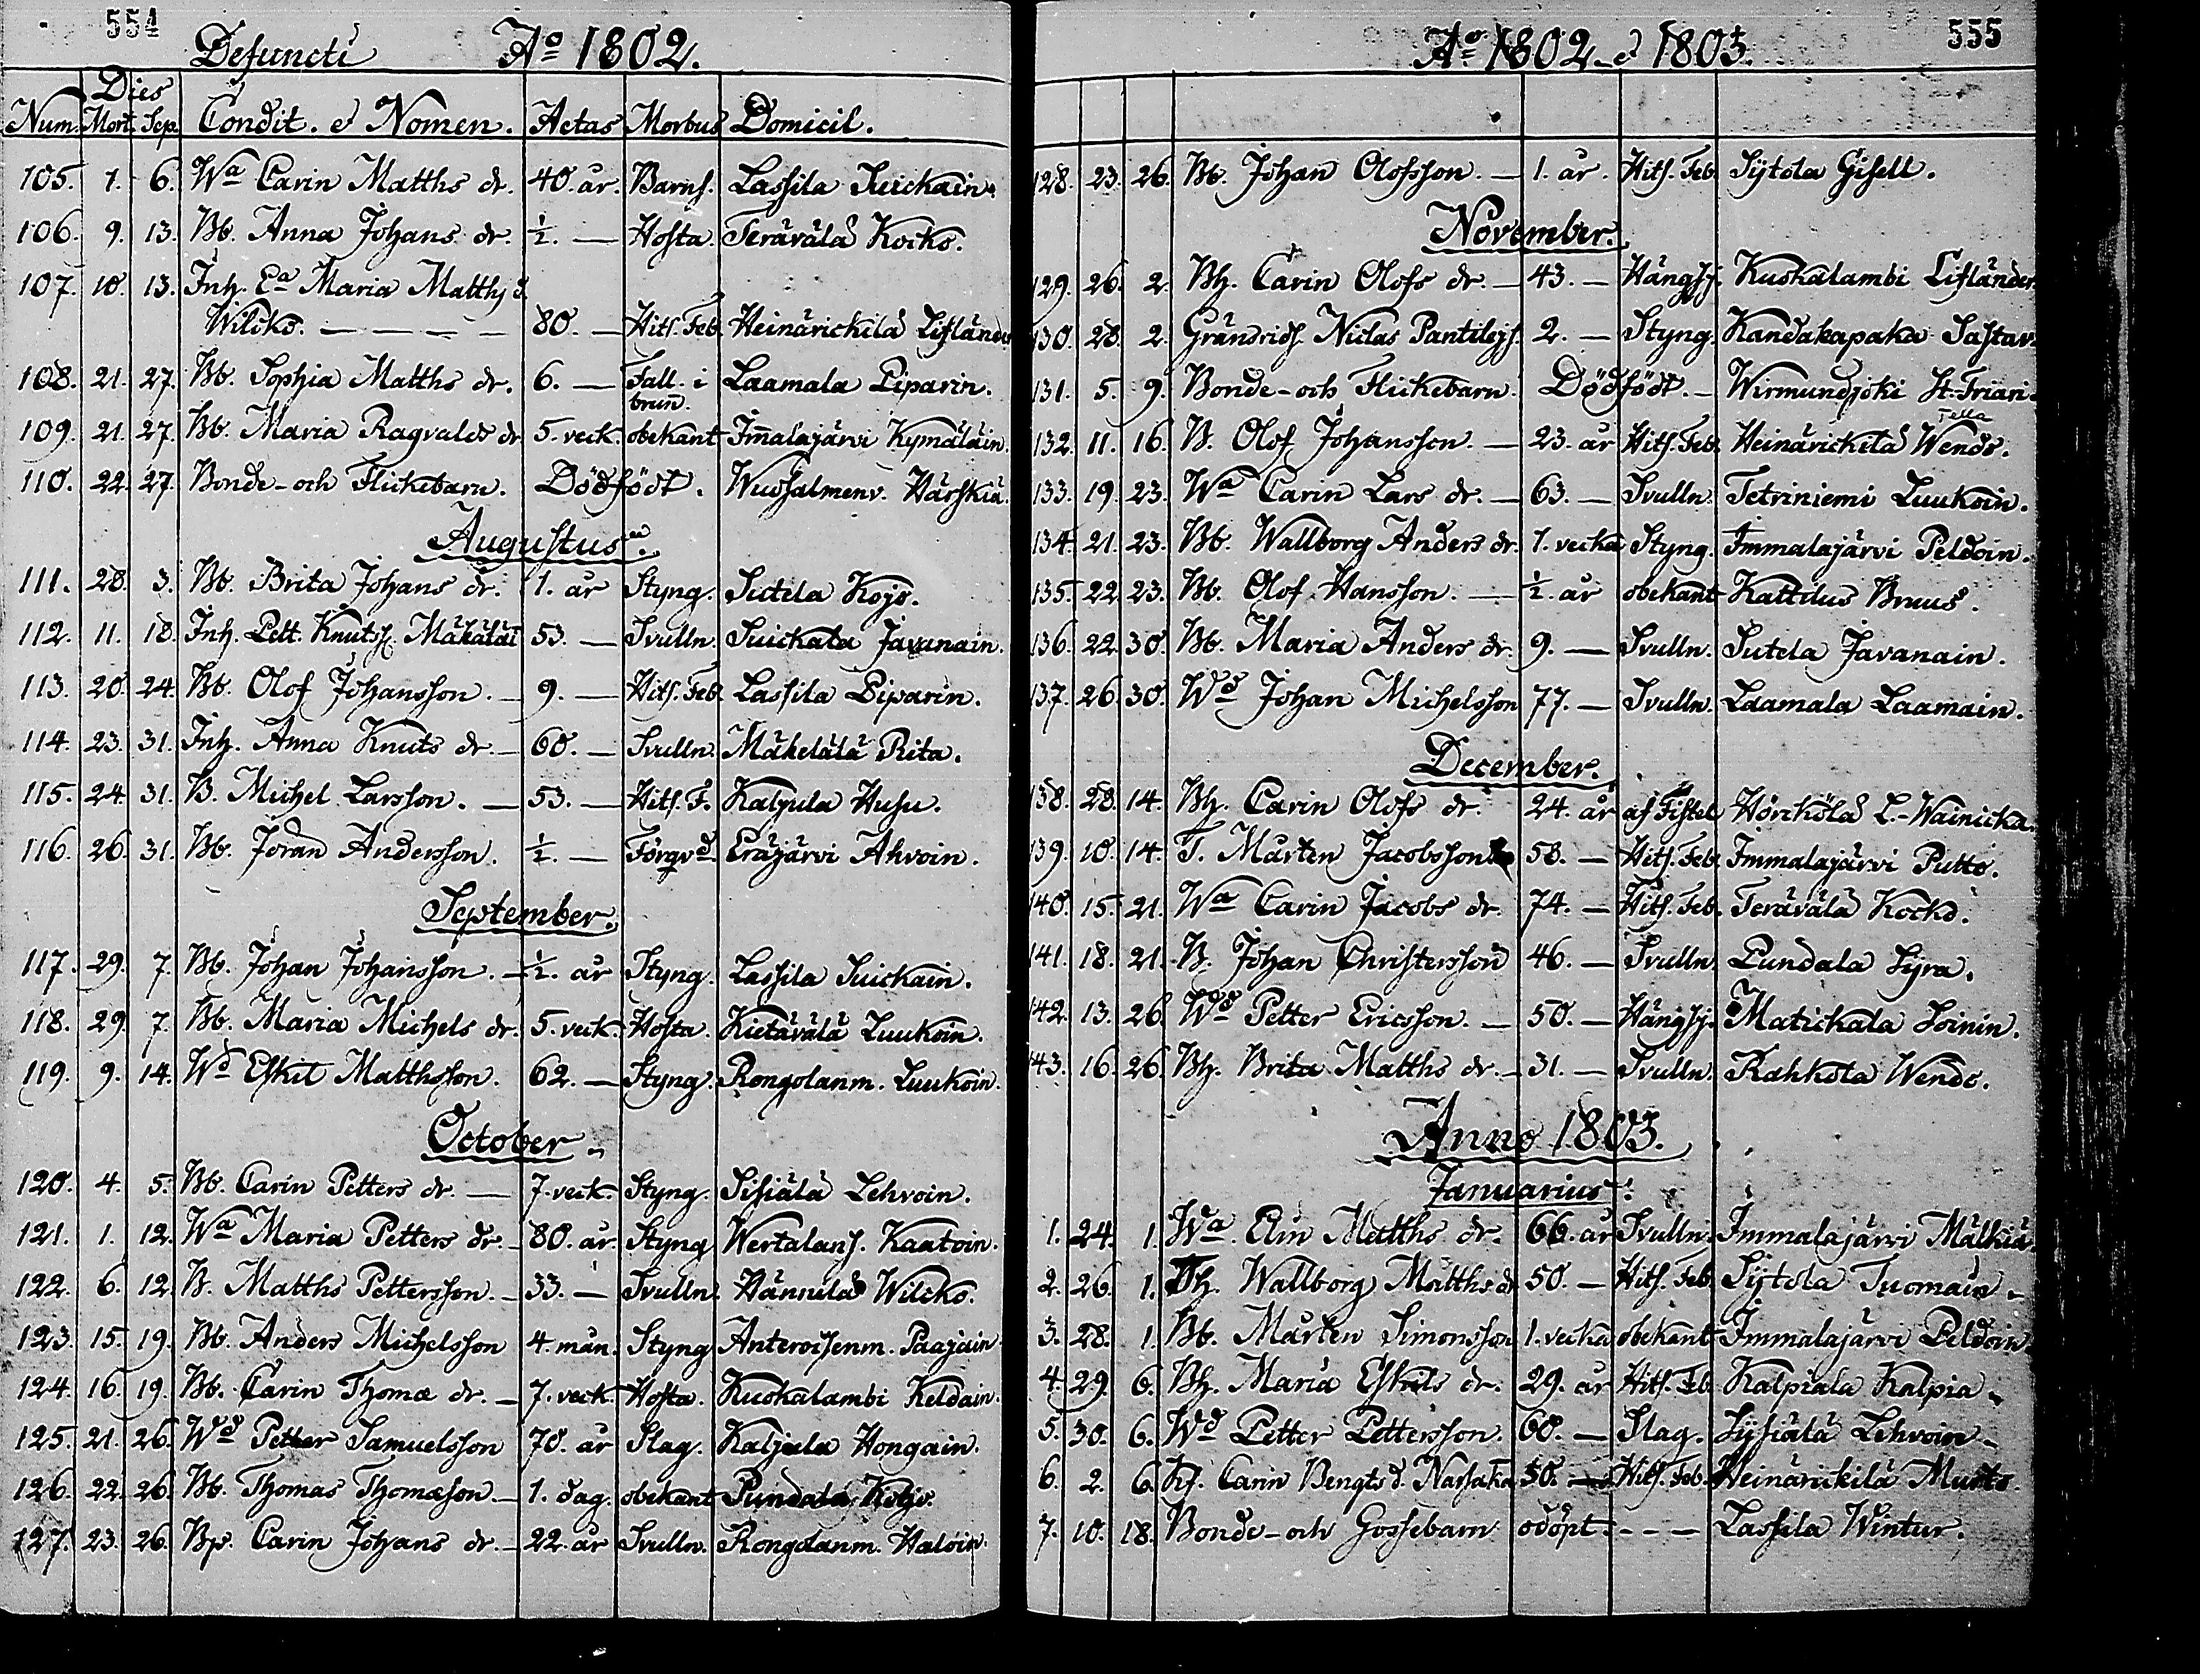 554
Defuncti Ao 1802.
Dies
Num. Mort. Sep. Condit. & Nomen. Aetas Morbus Domicil.
105. 1. 6. Wa Carin Matths dr. 40. år. Barns. Lassila Suickain.
106. 9. 13. Bb. Anna Johans dr. ½. — Hosta. Terävälä Kocko.
107. 10. 13. Inh. Ea Maria Matths d.
Wilcko. — — — — 80. — Hits. Feb. Heinärickilä Lifländer
108. 21. 27. Bb. Sophia Matths dr. 6. — Fall. i Laamala Piparin.
brun̄.
109. 21. 27. Bb. Maria Ragvalds dr 5. veck. obekant Im̄alajärvi Kymäläin.
110. 22. 27. Bonde- och Flickebarn. Dödfödt. Wuosalmenv. Härskiä.
Augustus.
111. 28. 3. Bb. Brita Johans dr. 1. år Styng. Sutela Kojo.
112. 11. 18. Inh. Pett. Knutss. Mäkäläi 53. — Svulln. Suickala Javanain.
113. 20. 24. Bb. Olof Johansson. — 9. — Hits. Feb. Lassila Piparin.
114. 23. 31. Inh. Anna Knuts dr. — 60. — Svulln. Mäkelälä Rita.
115. 24. 31. B. Michel Larsson. — 53. — Hits. F. Kaljula Husu.
116. 26. 31. Bb. Jöran Andersson. ½. — Förqvd. Eräjärvi Ahvoin.
September.
117. 29. 7. Bb. Johan Johansson. — ½. år Styng. Lassila Suickain.
118. 29. 7. Bb. Maria Michels dr. 5. veck. Hosta. Kietävälä Luukoin.
119. 9. 14. Wd Eskil Matthsson. 62. — Styng. Rongolanm. Luukoin.
October.
120. 4. 5. Bb. Carin Petters dr. — 7. veck. Styng. Sisiälä Lehvoin.
121. 1. 12. Wa Maria Petters dr. — 80. år. Styng Wertalans. Kaatoin.
122. 6. 12. B. Matths Pettersson. — 33. — Svulln. Hännilä Wilcko.
123. 15. 19. Bb. Anders Michelsson 4. mån. Styng Anteroisenm. Paajain.
124. 16. 19. Bb. Carin Thomæ dr. — 7. veck. Hosta. Kuokalambi Keldain.
125. 21. 26. Wd Petter Samuelsson 70. år Slag. Kaljula Hongain.
126. 22. 26. Bb. Thomas Thomæson. — 1. dag. obekant Pundala Kojo.
127. 23. 26. Bp. Carin Johans dr. — 22. år Svulln. Rongolanm. Haloin.
555
Ao 1802 & 1803.
128. 23. 26. Bb. Johan Olofsson. — 1. år. Hits. Feb. Sÿtola Gisell.
November.
129. 26. 2. Bh. Carin Olofs dr. — 43. — Hängsj. Kuokalambi Lifländer.
130. 28. 2. Gränrids. Niclas Pantilejs. 2. — Styng. Kandakapaka Sastav.
131. 5. 9. Bonde- och Flickebarn. Dödfödt. — Wirmundjoki St. Friari.
Tella
132. 11. 16. B. Olof Johansson. — 23. år Hits. Feb. Heinärickilä Wendo.
133. 19. 23. Wa Carin Lars dr. — 63. — Svulln. Tetriniemi Luukoin.
134. 21. 23. Bb. Wallborg Anders dr. 1. vecka Styng. Immalajärvi Peldoin.
135. 22. 23. Bb. Olof Hansson. — ½. år obekant Kattilus Bruus.
136. 22. 30. Bb. Maria Anders dr. 9. — Svulln. Sutela Javanain.
137. 26. 30. Wd Johan Michelsson 77. — Svulln. Laamala Laamain.
December.
138. 28. 14. Bh. Carin Olofs dr. 24. år af Fistel Hörckölä L.-Wainicka.
139. 10. 14. T. Mårten Jacobsson 58. — Hits. Feb. Immalajärvi Putto.
140. 15. 21. Wa Carin Jacobs dr. 74. — Hits. Feb. Terävälä Kocko.
141. 18. 21. B. Johan Christersson 46. — Svulln. Pundala Syra.
142. 13. 26. Wd Petter Ericsson. — 50. — Hängsj. Matickala Soinin.
143. 16. 26. Bh. Brita Matths dr. — 31. — Svulln. Rahkola Wendo.
Anno 1803.
Januarius.
1. 24. 1. Wa Elin Matths dr. 66. år Svulln. Immalajärvi Mälkiä.
2. 26. 1. Th. Wallborg Matths dr 50. — Hits. Feb. Sÿtola Tuomain.
3. 28. 1. Bb. Mårten Simonsson 1. vecka obekant Immalajärvi Peldoin.
4. 29. 6. Bh. Maria Eskils dr. 29. år Hits. Feb. Kalpiala Kalpia.
5. 30. 6. Wd Petter Pettersson. 60. — Slag. Sÿsiälä Lehvoin.
6. 2. 6. Carin Bengts d. 50. — Hits. Feb. Heinärickilä Musto.
7. 10. 18. Bonde- och Gossebarn odöpt. - - — Lassila Wintur.